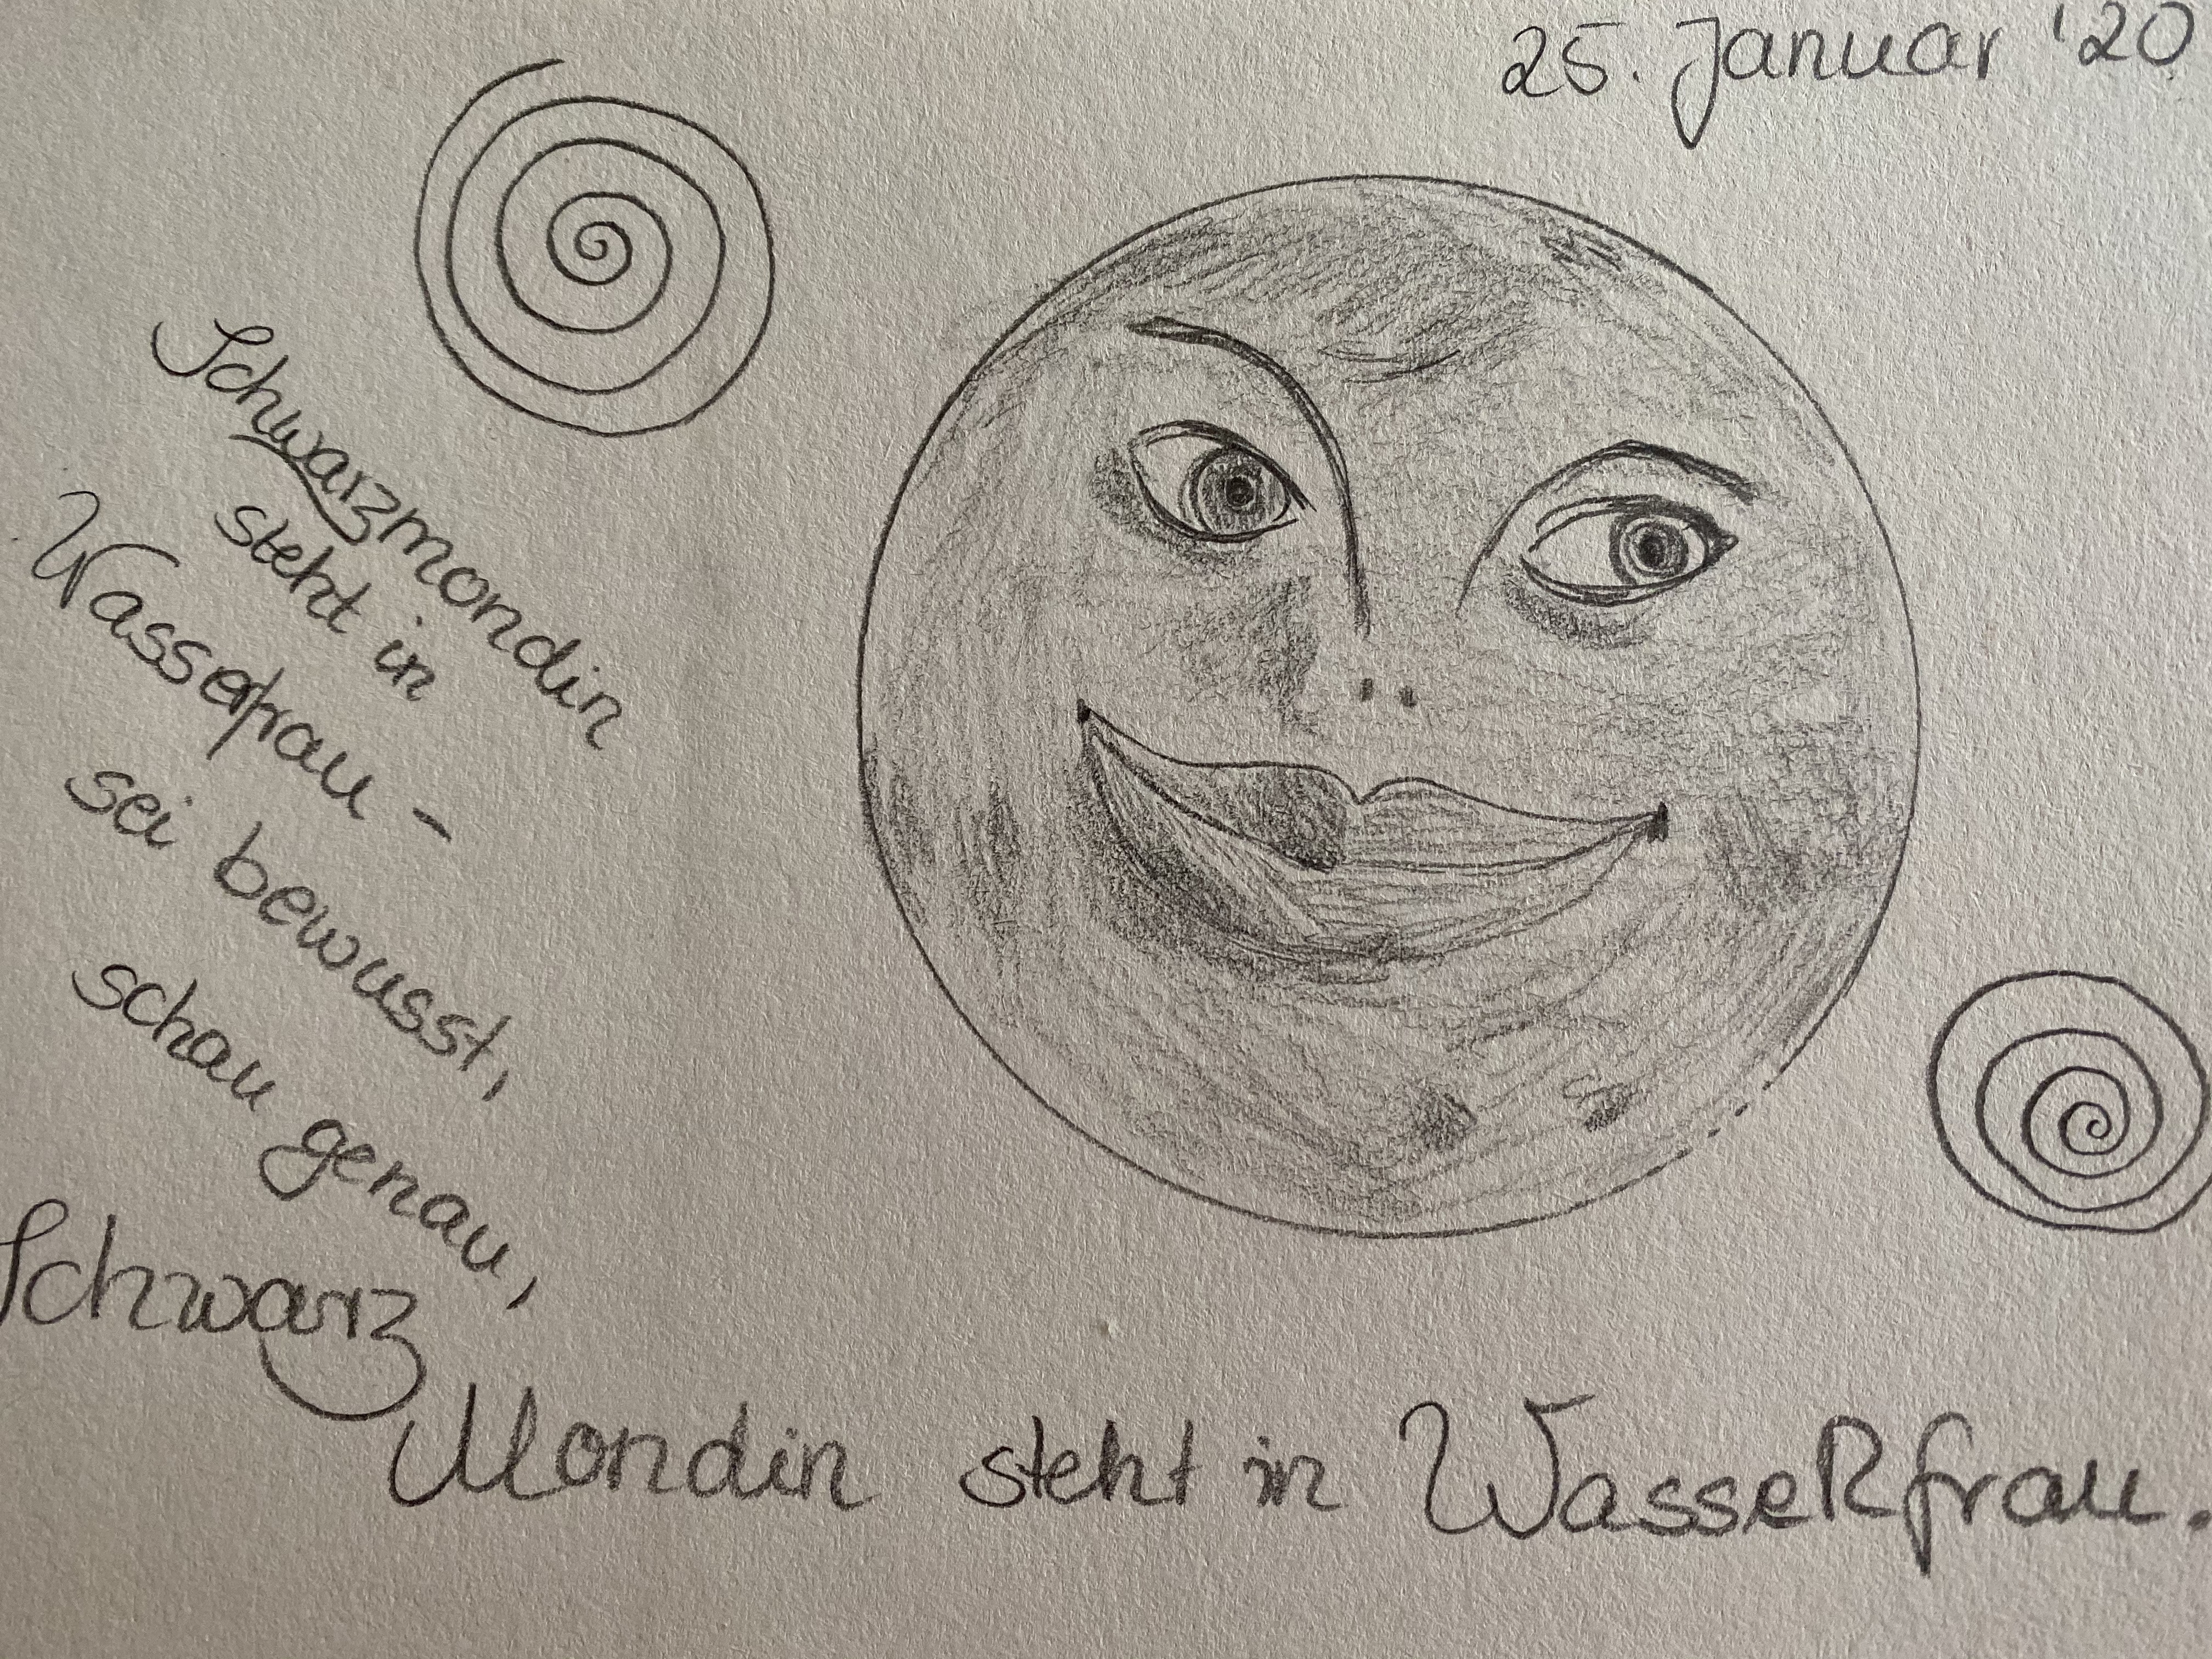 25. Januar '20
Schwarzmondin
steht in
Wasserfrau –
sei bewusst,
schau genau,
Schwarz
Mondin steht in WasseRfrau.